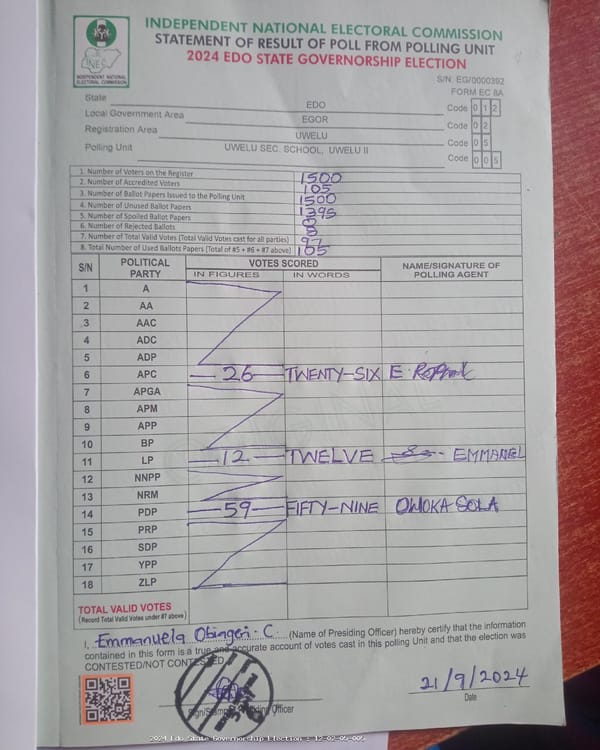 INDEPENDENT NATIONAL ELECTORAL COMMISSION
STATEMENT OF RESULT OF POLL FROM POLLING UNIT
2024 EDO STATE GOVERNORSHIP ELECTION
INEC
INDEPENDENT NATIONAL
ELECTORAL COMMISSION
S/N. EG/0000392
FORM EC 8A
State EDO Code 0 1 2
Local Government Area EGOR Code 0 2
Registration Area UWELU Code 0 5
Polling Unit UWELU SEC. SCHOOL, UWELU II Code 0 0 5
1. Number of Voters on the Register 1500
2. Number of Accredited Voters 105
3. Number of Ballot Papers Issued to the Polling Unit 1500
4. Number of Unused Ballot Papers 1395
5. Number of Spoiled Ballot Papers 0
6. Number of Rejected Ballots 8
7. Number of Total Valid Votes (Total Valid Votes cast for all parties) 97
8. Total Number of Used Ballots Papers (Total of #5 + #6 + #7 above) 105
S/N POLITICAL PARTY VOTES SCORED NAME/SIGNATURE OF POLLING AGENT
IN FIGURES IN WORDS
1 A
2 AA
3 AAC
4 ADC
5 ADP
6 APC 26 TWENTY-SIX E.
7 APGA
8 APM
9 APP
10 BP
11 LP 12 TWELVE EMMANEL
12 NNPP
13 NRM
14 PDP 59 FIFTY-NINE OWOKA SOLA
15 PRP
16 SDP
17 YPP
18 ZLP
TOTAL VALID VOTES
(Record Total Valid Votes under #7 above)
I, Emmanuela Obingeri. C. (Name of Presiding Officer) hereby certify that the information
contained in this form is a true and accurate account of votes cast in this polling Unit and that the election was
CONTESTED/NOT CONTESTED
21/9/2024
Sign/Stamp Officer Date
2024 Edo State Governorship Election : 12-02-05-005